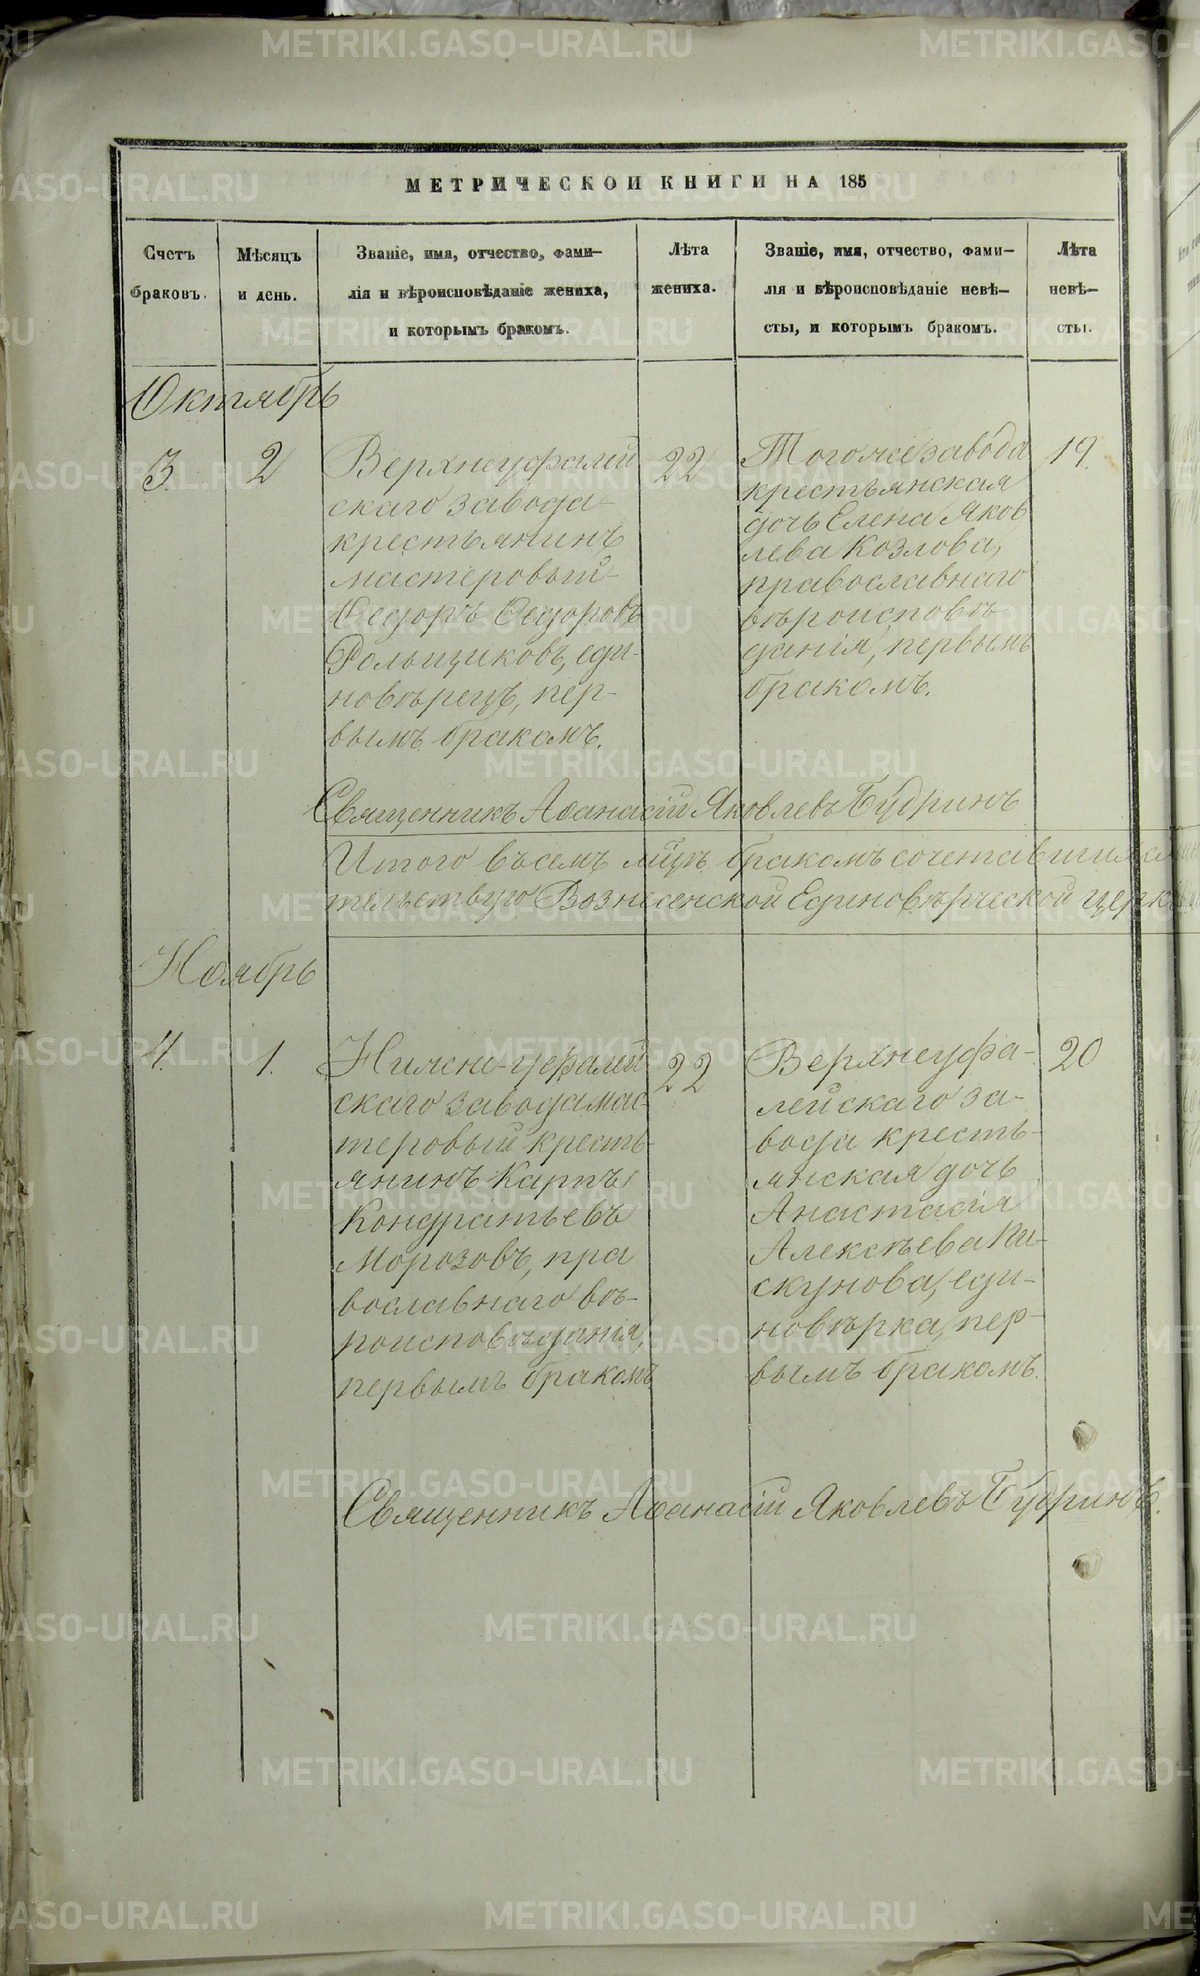 МЕТРИЧЕСКОЙ КНИГИ НА 185
Счетъ браковъ.
Мѣсяцъ и день.
Званіе, имя, отчество, фами-
лія и вѣроисповѣданіе жениха,
и которымъ бракомъ.
Лѣта жениха.
Званіе, имя, отчество, фами-
лія и вѣроисповѣданіе невѣ-
сты, и которымъ бракомъ.
Лѣта невѣ-
сты.
Октябрь
3.
2
Верхнеуфалей
скаго завода
крестьянинъ
мастеровый
Ѳедоръ Ѳедоровъ
Рольщиковъ, еди-
новѣрецъ, пер-
вымъ бракомъ.
22
Тогоже завода
крестьянская
дочь Елена Яков
лева Козлова,
православнаго
вѣроисповѣ
данія, первымъ
бракомъ.
19.
Священникъ Аѳанасій Яковлевъ Будринъ
Итого въсемъ лицъ бракомъ сочетавшихся
тельствую Вознесенской Единовѣрческой церк
Ноябрь
4.
1.
Нижне-уфалей
скаго завода мас-
теровый кресть-
янинъ Карпъ
Кондратьевъ
Морозовъ, пра
вославнаго вѣ-
роисповѣданія,
первымъ бракомъ
22
Верхнеуфа-
лейскаго за-
вода кресть-
янская дочь
Анастасія
Алексѣева Пи-
скунова, еди-
новѣрка, пер-
вымъ бракомъ.
20
Священникъ Аѳанасій Яковлевъ Будринъ.
METRIKI.GASO-URAL.RU